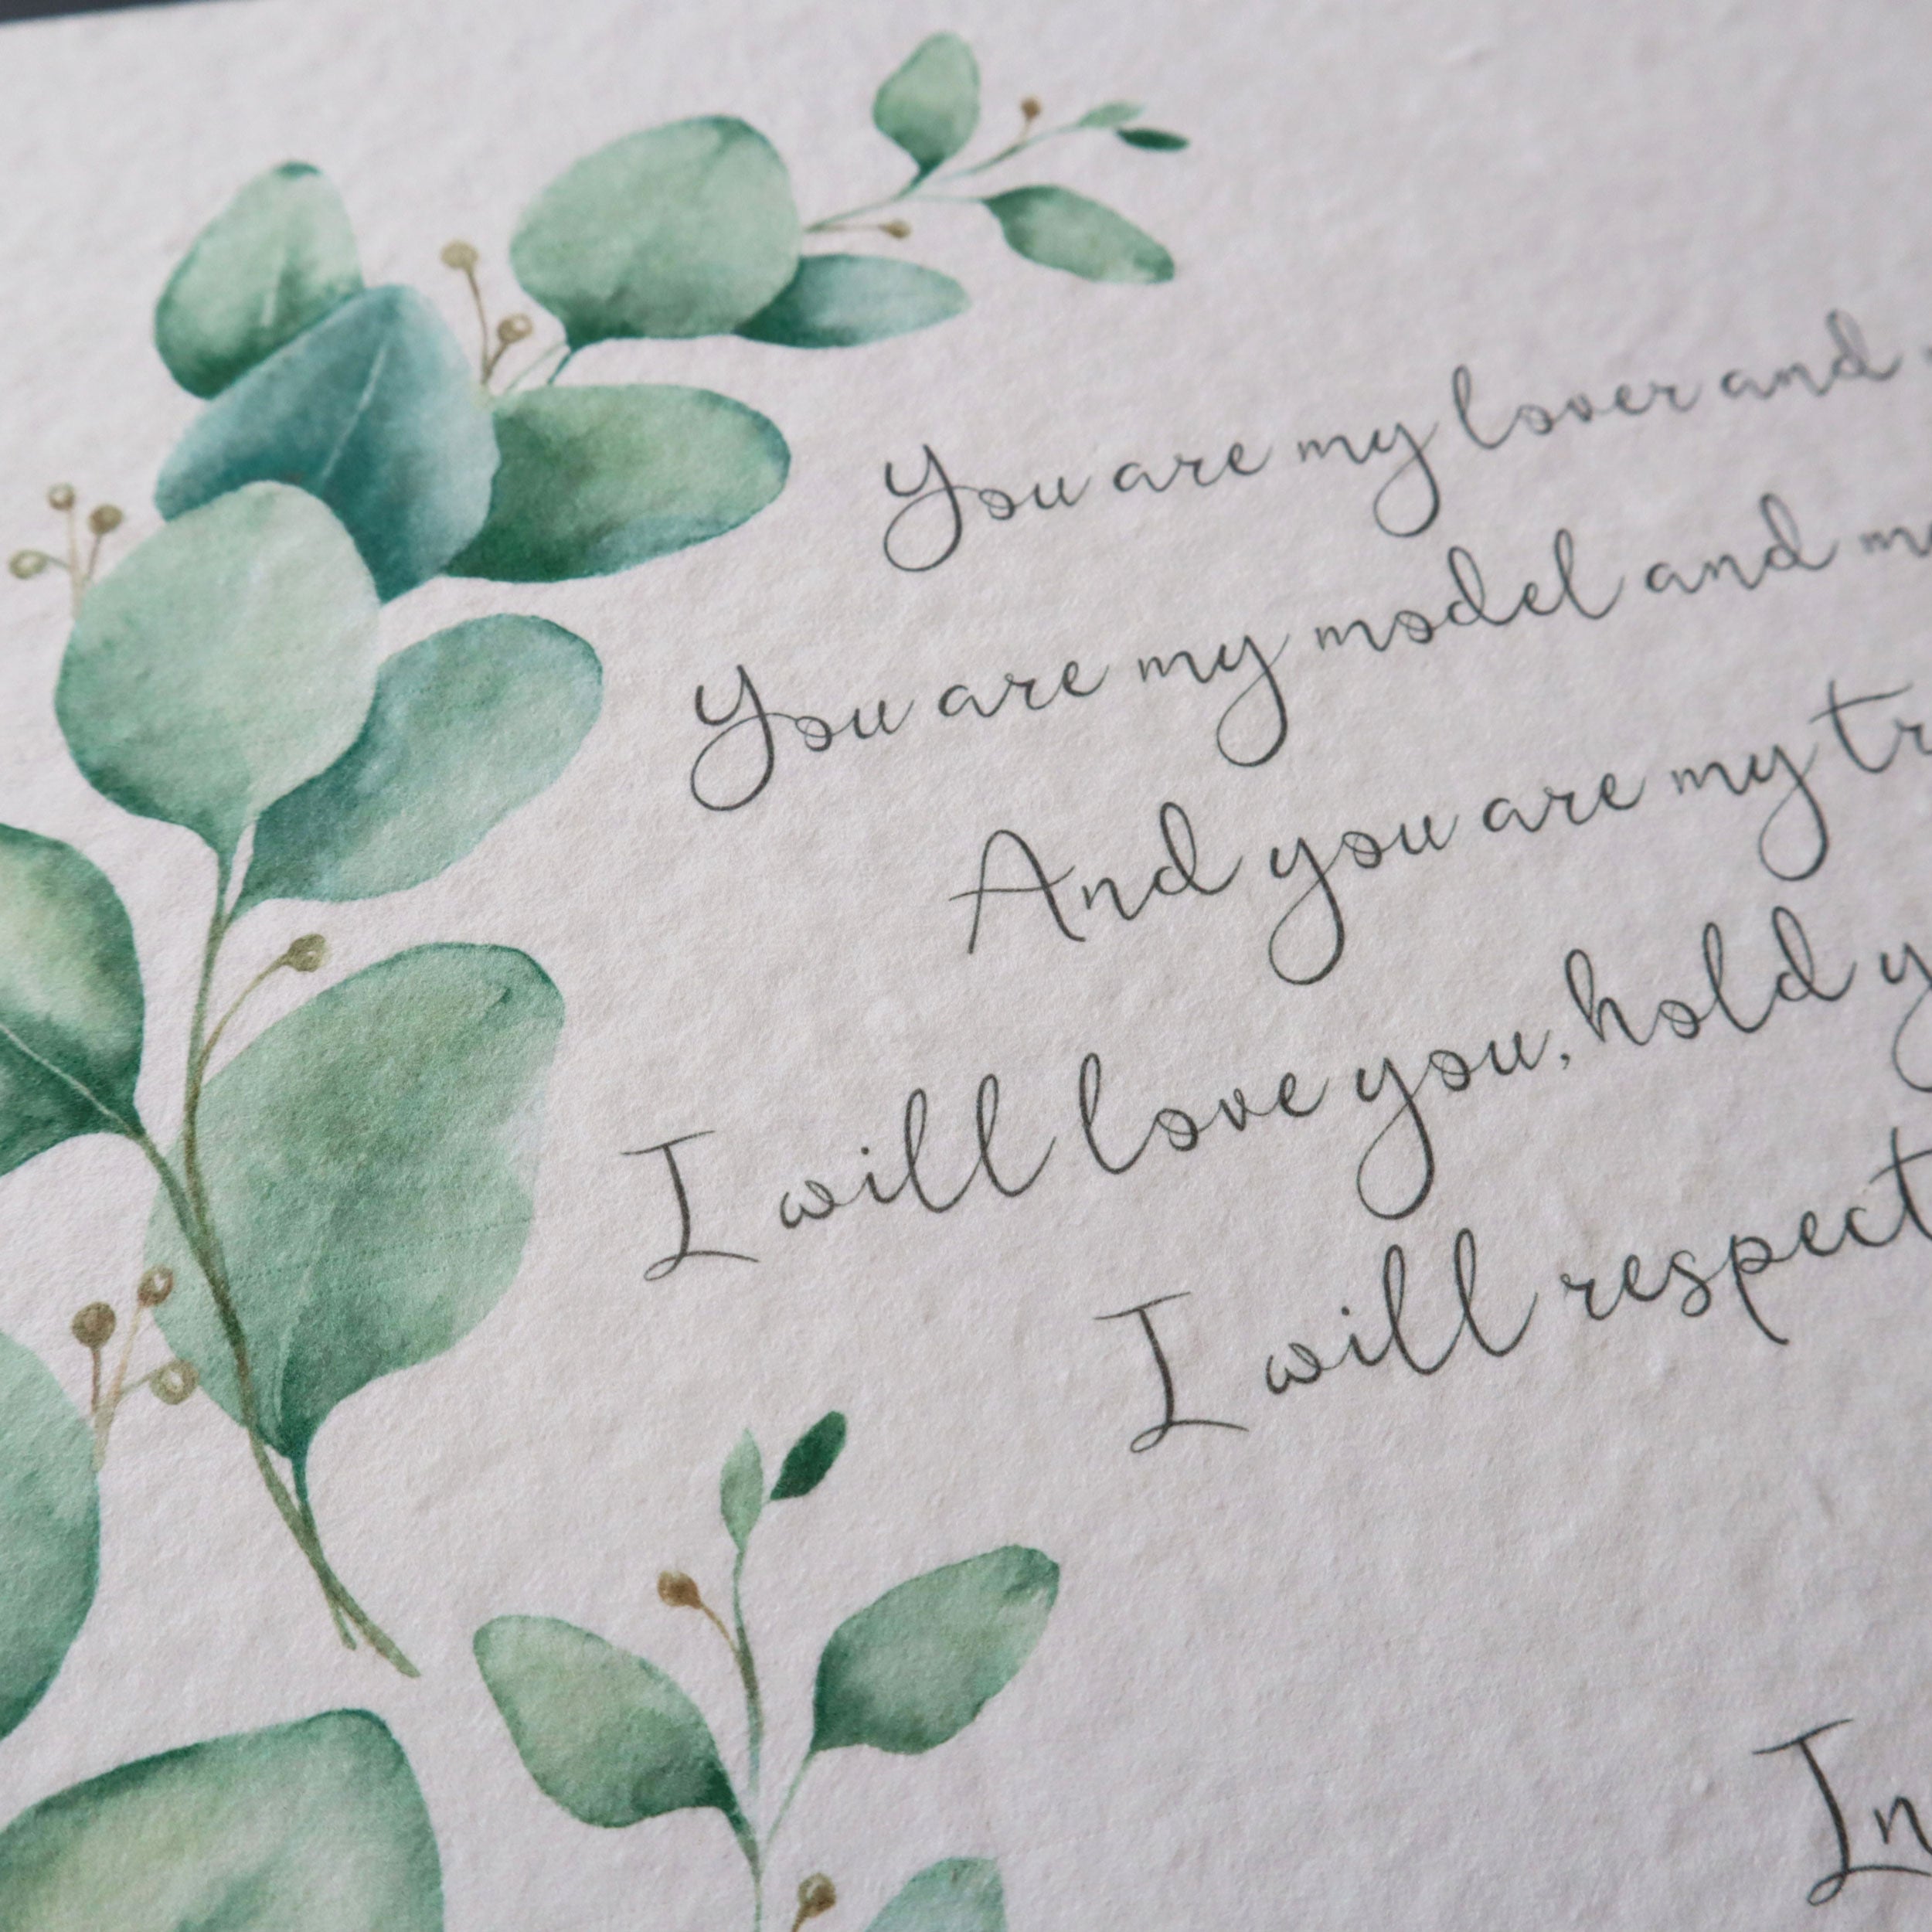 You are my lover and
You are my model and
And you are my
I will love you, hold
I will respect
In